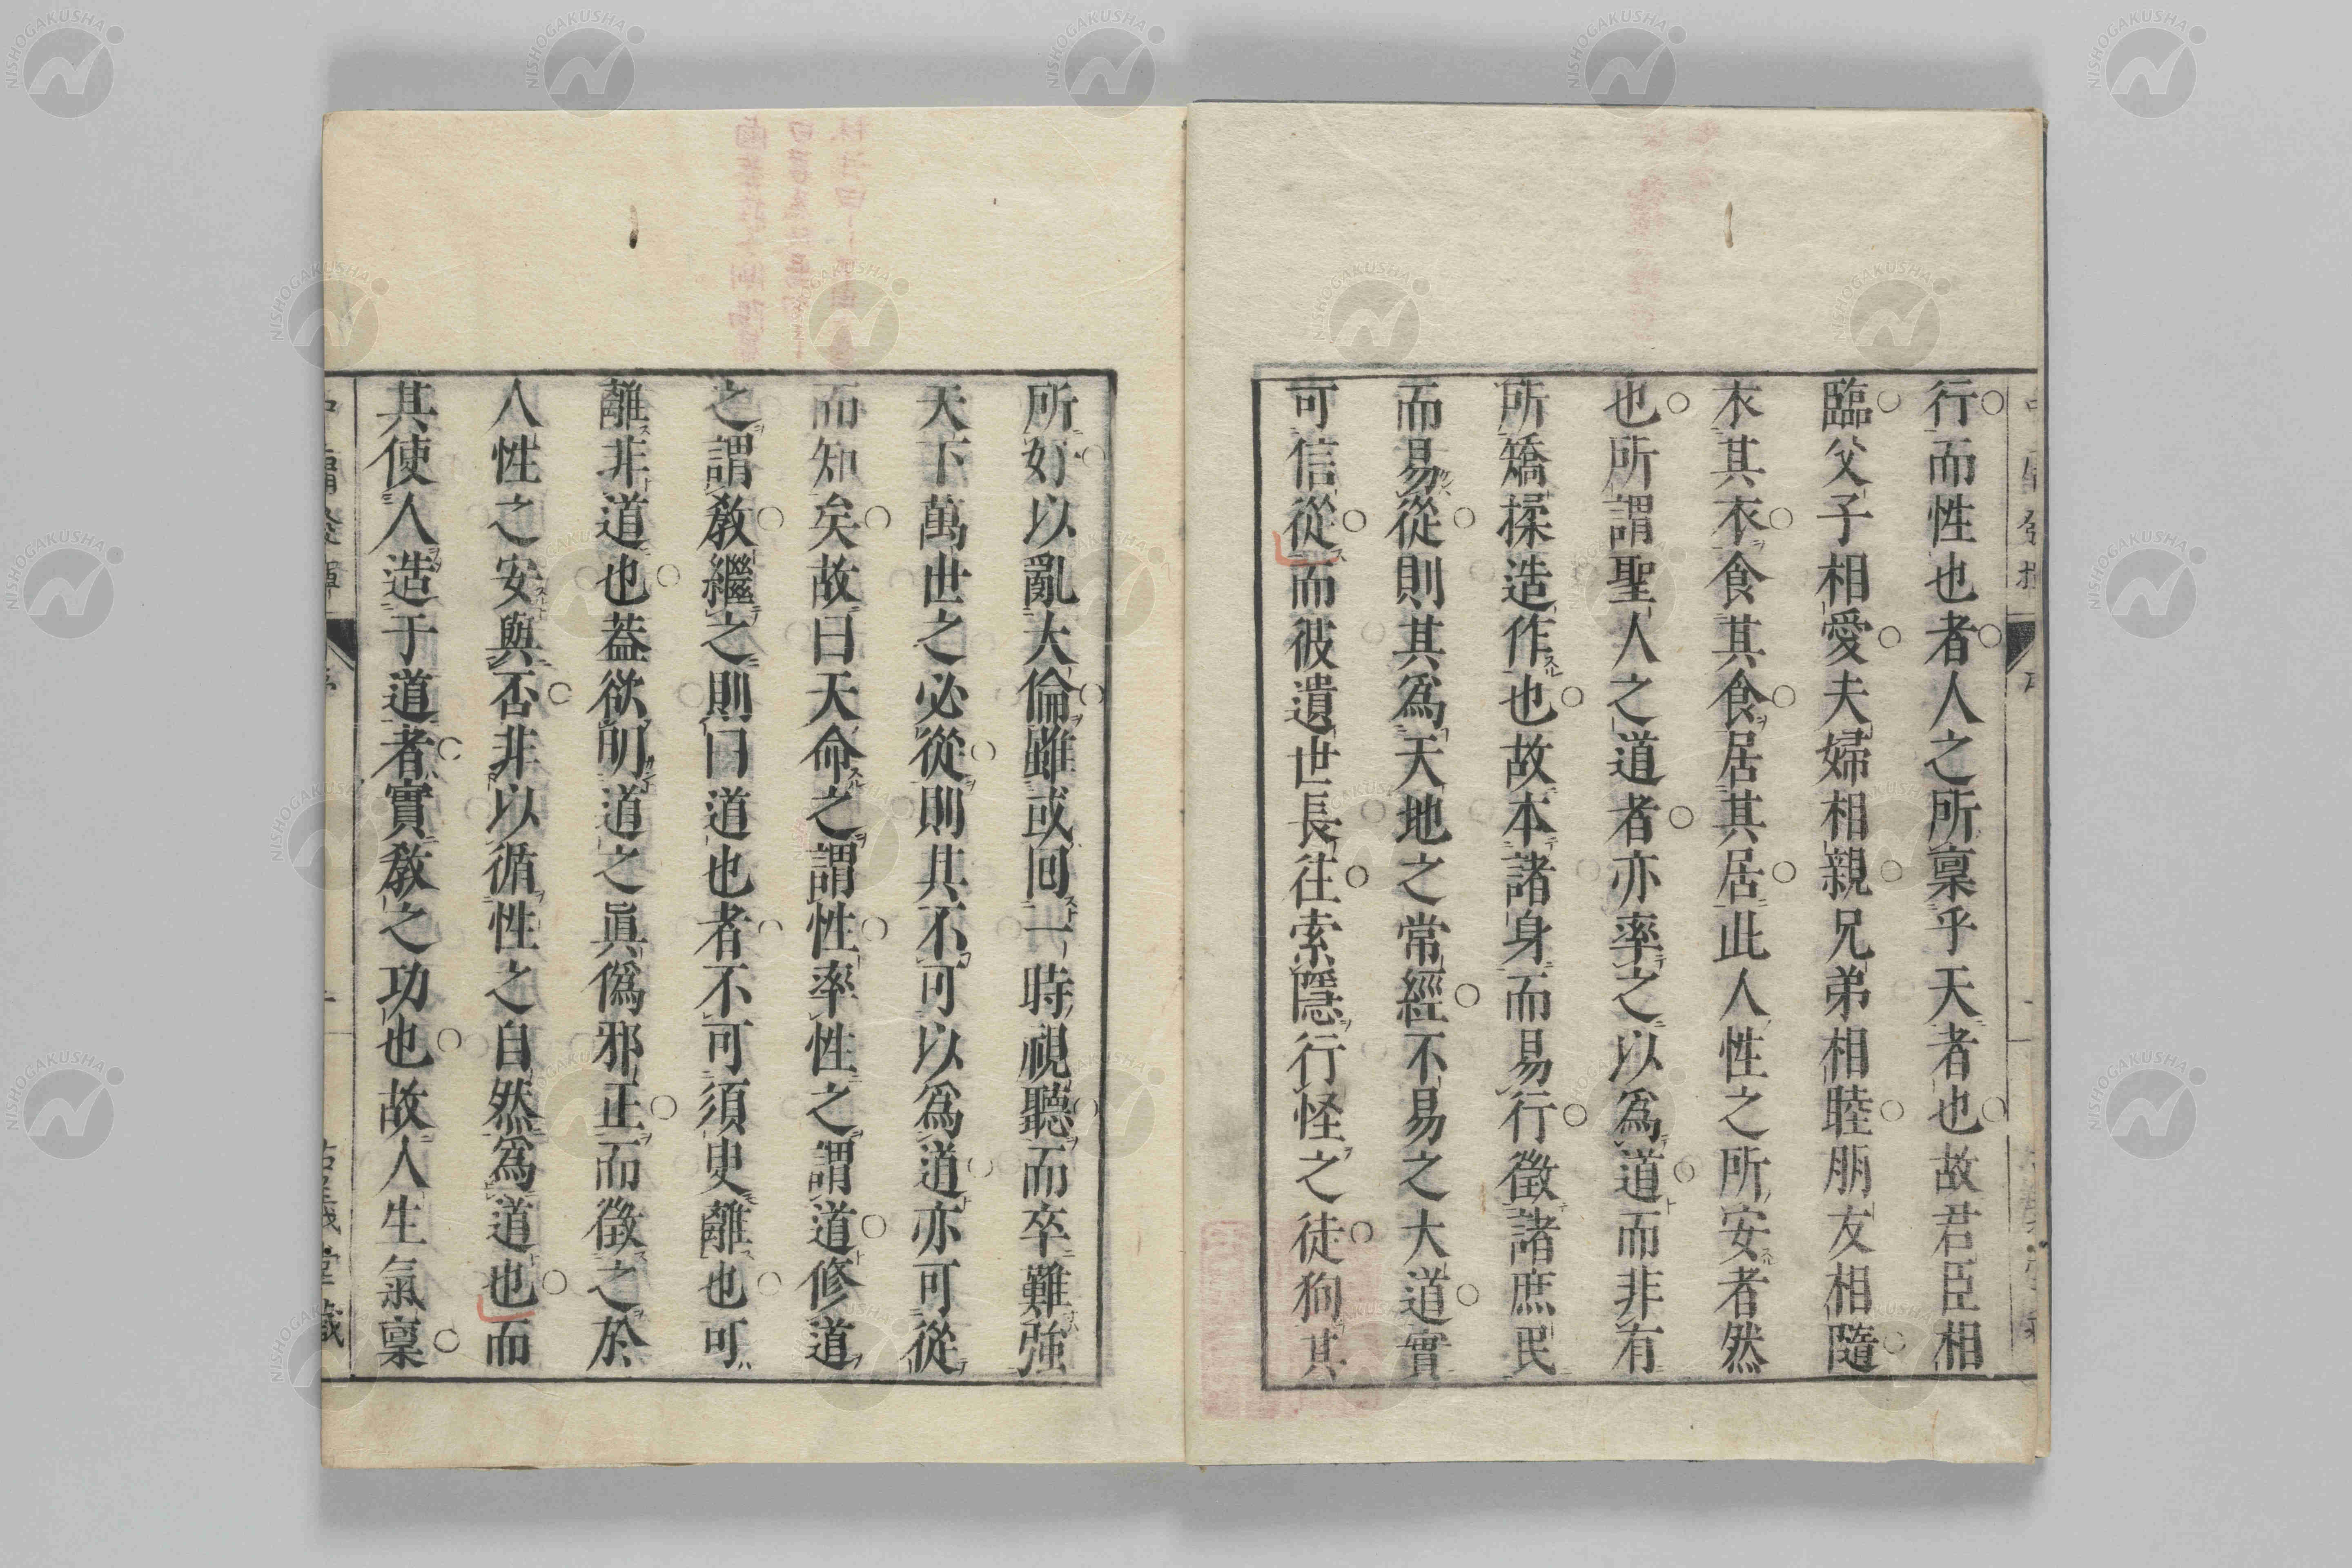 行而性也者人之所稟乎天者也故君臣相
臨父子相愛夫婦相親兄弟相睦朋友相隨
衣其衣食其食居其居此人性之所安者然
也所謂聖人之道者亦率之以爲道而非有
所矯揉造作也故本諸身而易行徵諸庶民
而易從則其爲天地之常經不易之大道實
可信從而彼遺世長往索隱行怪之徒狥其
所好以亂大倫雖或回一時視聽而卒難強
天下萬世之必從則其不可以爲道亦可從
而知矣故曰天命之謂性率性之謂道修道
之謂教繼之則曰道也者不可須臾離也可
離非道也蓋欲明道之眞僞邪正而徵之於
人性之安與否非以循性之自然爲道也而
其使人造于道者實教之功也故人生氣稟
古義堂藏
NISHOGAKUSHA
NISHOGAKUSHA
NISHOGAKUSHA
NISHOGAKUSHA
NISHOGAKUSHA
NISHOGAKUSHA
NISHOGAKUSHA
NISHOGAKUSHA
NISHOGAKUSHA
NISHOGAKUSHA
NISHOGAKUSHA
NISHOGAKUSHA
NISHOGAKUSHA